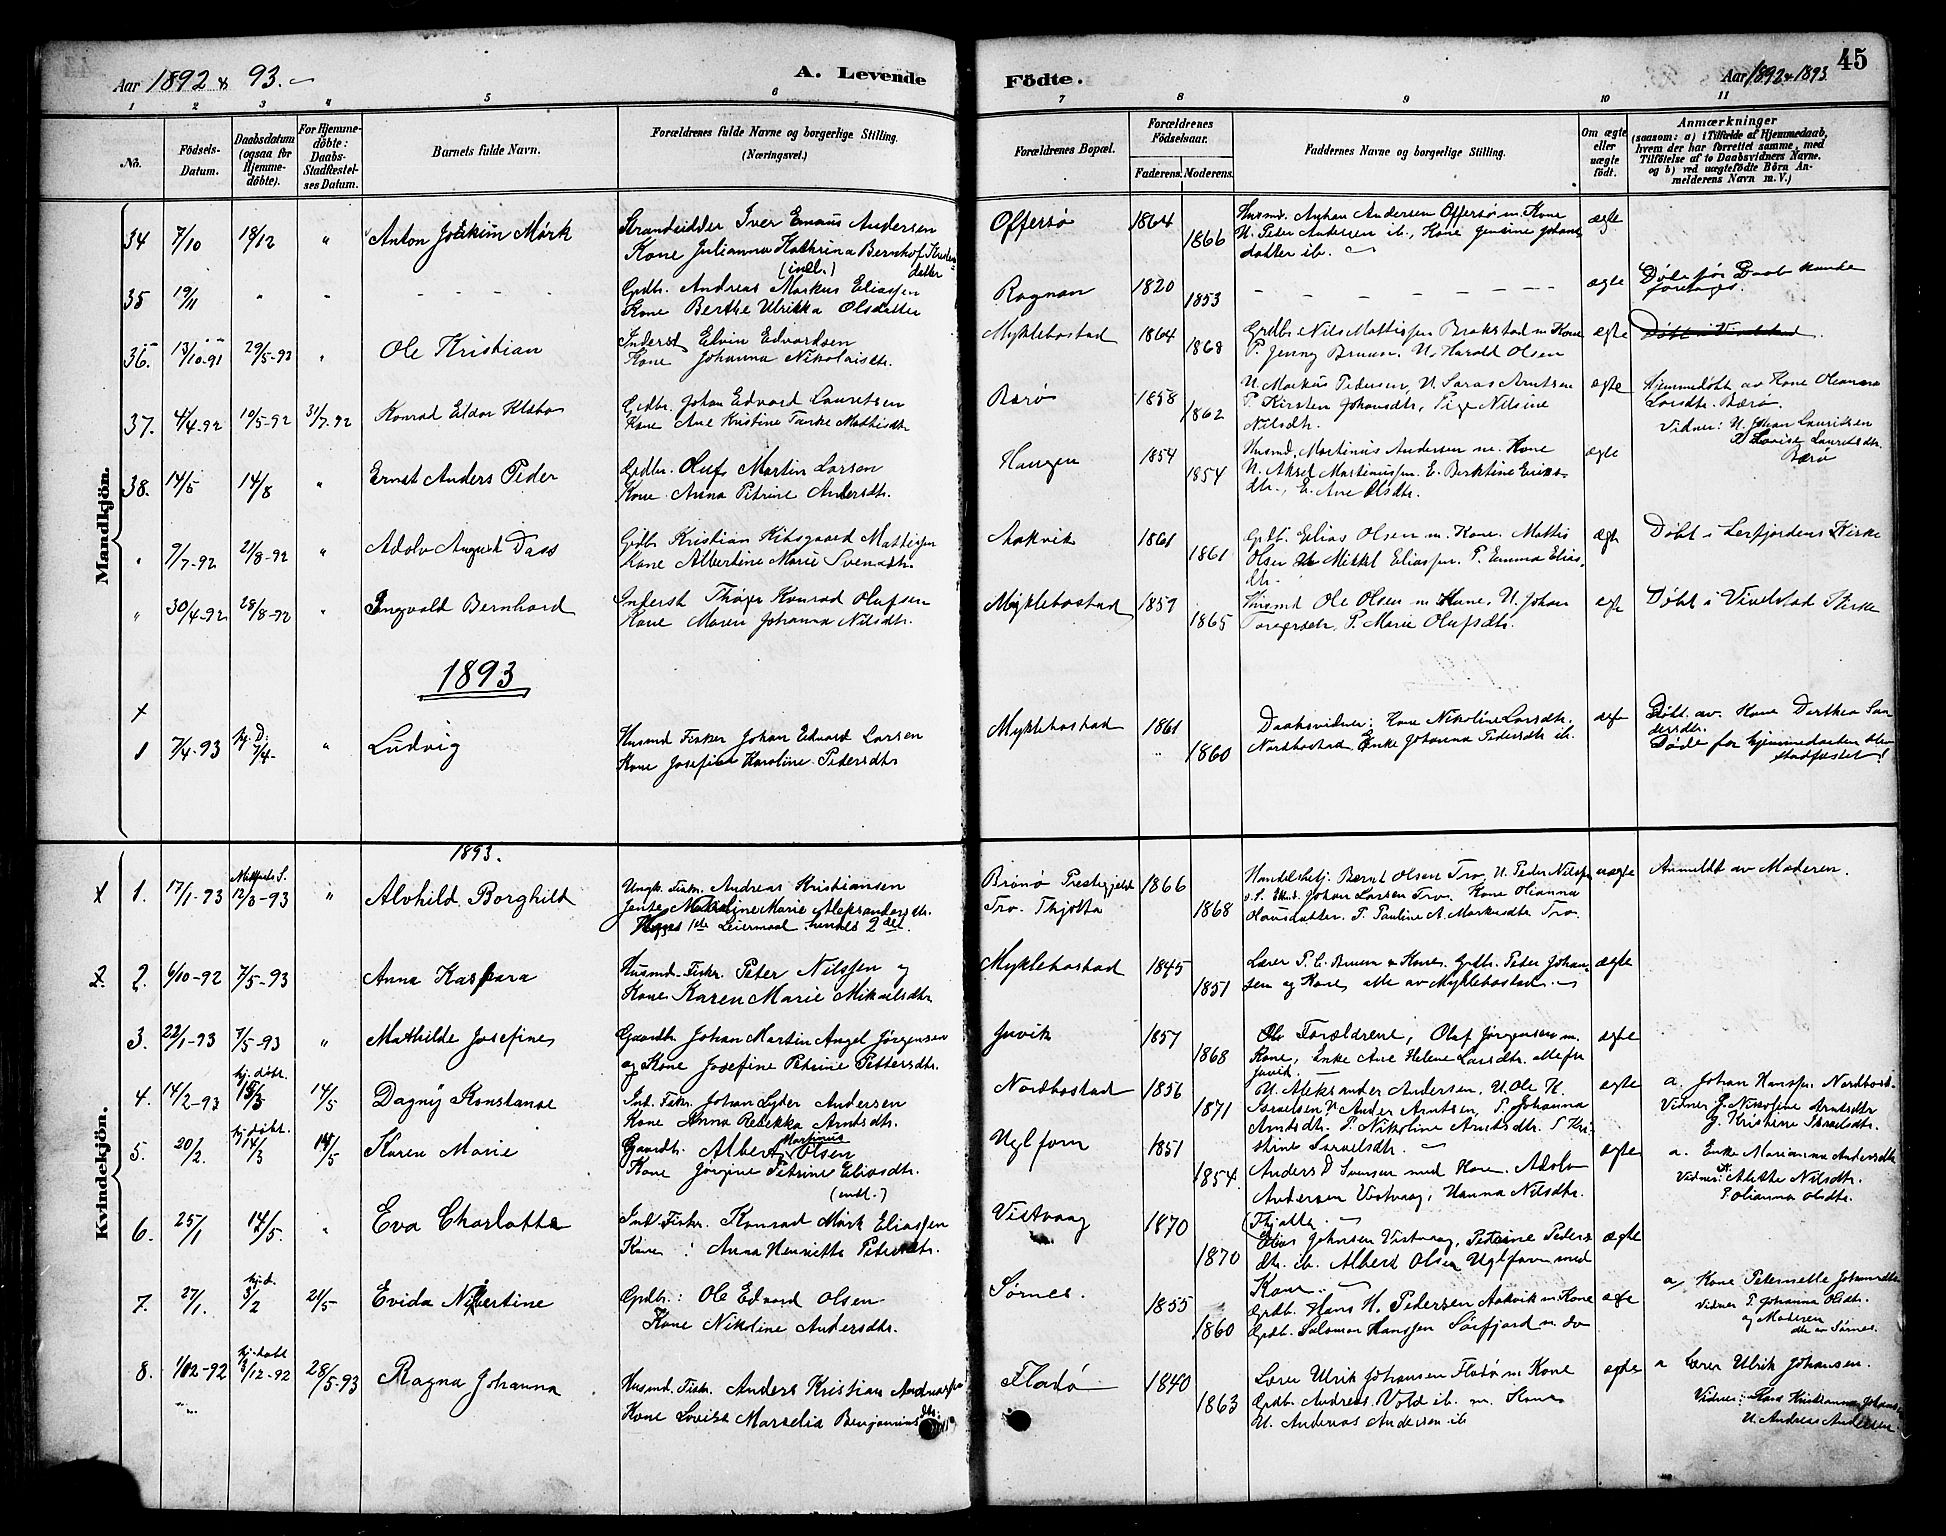 Aar 1892 & 93.
A. Levende
Födte.
Aar 1892 & 1893.
45
1 2 3 4 5 6 7 8 9 10 11
No.
Födsels-Datum.
Daabsdatum (ogsaa for Hjemmedöbte).
For Hjemmedöbte: Daabs-Stadfæstelses Datum.
Barnets fulde Navn.
Forældrenes fulde Navne og borgerlige Stilling. (Næringsvei.)
Forældrenes Bopæl.
Forældrenes Födselsaar.
Faderens. Moderens.
Faddernes Navne og borgerlige Stilling.
Om ægte eller uægte födt.
Anmærkninger
(saasom: a) i Tilfælde af Hjemmedaab, hvem der har forrettet samme, med Tilföielse af to Daabsvidners Navne. og b) ved uægtefödte Börn Anmelderens Navn m. V.)
Mandkjön.
34 7/10 18/12 " Anton Joakim Mørk
Strandsidder Iver Emaus Andersen
Kone Julianna Kathrina Bernhof
(indl.)
Offersø 1864 1866
Husmd. Anton Andersen Offersø m. Kone
U. Peter Andersen ib., Kone Jensine Johans
datter ib.
ægte
35 19/11 " "
Grdbr. Andreas Markus Eliassen
Kone Berthe Ulrikka Olsdatter
Rognan 1820 1853
ægte
Døde før Daab kunde
foretages.
36. 13/10-91 29/5-92 " Ole Kristian
Inderst Elvin Edvardsen
Kone Johanna Nikolaisdtr.
Myklebostad 1864 1868
Grdbr. Nils Mattissen Brækstad m. Kone
P. Jenny Bruun. U. Harald Olsen
ægte
37. 4/4-92 10/5-92 31/7-92 Konrad Eidar Klæbo
Grdbr. Johan Edvard Lauritsen
Kone Ane Kristine Mathisdtr
Bærø 1858 1862
U. Markus Pedersen, U. Saras Arntsen
P. Kirsten Johansdtr, Pige Nilsine
Nilsdtr.
ægte
Hjemmedøbt av Kone Oleanna
Larsdtr. Bærø.
Vidner: U. Johan Lauritsen
P. Lovise Lauritsdtr.
Bærø
38. 14/5 14/8 " Ernst Anders Peder
Grdbr. Oluf Martin Larsen
Kone Anna Petrine Andersdtr.
Haugen 1854 1854
Husmd. Martinus Andersen m. Kone
U. Aksel Martinussen. E. Berktine Eriks-
dtr., E. Ane Olsdtr.
ægte
" 9/7-92 21/8-92 " Adolv August Dass
Grdbr Kristian Mattisen
Kone Albertine Marie Svensdtr.
Aakvik 1861 1861
Grdbr. Elias Olsen m. Kone. Mattis
Olsen Mikkel Eliassen. P. Emma Elias
dtr.
ægte
Døbt i Leirfjordens Kirke
" 30/4-92 28/8-92 " Ingvald Bernhard
Inderst Konrad Olufsen
Kone Maren Johanna Nilsdtr.
Myklebostad 1857 1865
Husmd Ole Olsen m. Kone, U. Johan
P. Marie Olufsdtr.
ægte
Døbt i Vivelstad Kirke
1893
x
1 7/4-93 hj. D. 7/4- " Ludvig
Husmd Fisker Johan Edvard Larsen
Kone Josefine Karoline Pedersdtr
Myklebostad 1861 1860
Daabsvidner: Kone Nikoline Larsdtr.
Nordbostad Enke Johanna Pedersdtr ib.
ægte
Døbt av Kone Dorthea
Døde før hjemmedaaben blev
stadfæstet!
Kvindekjön.
1893.
x 1. 17/1-93 12/3-93 " Alvhild Borghild
Ungk. Fiskr. Andreas Kristiansen
Jente Marie Aleksandersdtr.
1ste Leiermaal. hendes 2det.
Brønø Prestegjeld
Tro. Thjøtta
1866 1868
Handelsbetj. Bernt Olsen Tro, U. Peder Nilsen
Johan Larsen Tro. Kone Olianna
Hansdatter. P. Pauline A. Markusdtr Tro.
uægte
Anmeldt av Moderen.
2. 2. 6/10-92 7/5-93 Anna Kaspara
Husmd. Fiskr. Peter Nilssen og
Kone Karen Marie Mikaelsdtr.
Myklebostad 1845 1851
Lærer P. C. Bruun & Kone. Grdbr. Peder Johan-
sen og Kone, alle av Myklebostad.
ægte
3. 22/1-93 7/5-93 " Mathilde Josefine
Gaardbr. Johan Martin Angel Jørgensen
og Kone Josefine Petrine Pettersdtr.
Juvik 1857 1868
Forældrene, Olaf Jørgensen m.
Kone, Enke Ane Helene Larsdtr. alle fra
Juvik.
ægte
4. 14/2-93 hj. døbt. 15/3 14/5 Dagny Konstanse
Ind. Fiskr. Johan Lyder Andersen
Kone Anna Rebekka Arntsdtr.
Nordbostad 1856 1871
U. Aleksander Andersen, U. Ole H.
Israelsen Ander Arntsen, P. Johanna
Arntsdtr. P. Nikoline Arntsdtr. P Kri-
stine Israelsdtr.
ægte
a. Johan Hanssen Nordbost.
Vidner P. Nikoline Arntsdtr
P. Kristine Israelsdtr.
5. 20/2. hj. døbt. 14/3 14/5 Karen Marie
Gaardbr. Albert Martinus Olsen
Kone Jørgine Petrine Eliasdtr.
(indl.)
Uglfavn 1851 1854
Anders D Svensen med Kone. Adolv
Andersen Vistvaag, Hanna Nilsdtr.
Thjøtta.
ægte
a. Enke Marianna Andersdtr
Vidner: Alette Nilsdtr.
P. Olianna Olsdtr.
6. 25/1 14/5. " Eva Charlotte
Ind. Fiskr. Konrad Mørk Eliassen
Kone: Anna Henriette Petersdtr.
Vistvaag 1870 1870
Elias Johnsen Vistvaag, Petrine Peders
dtr. ib. Albert Olsen Uglfavn med
Kone.
ægte
7. 27/1. hj. d. 3/2 21/5 Evida Nibertine
Grdbr.: Ole Edvard Olsen
Kone Nikoline Andersdtr.
Sørnes. 1855 1860
Grdbr. Hans H. Pedersen Aakvik m. Kone
Grdbr. Salomon Hanssen Sørfjord m. do
ægte
a, Kone Peternelle Johansdtr
Vidner P. Johanna Olsdtr.
og Moderen
alle av Sørnes.
8. 1/12-92 hj. døbt 3/12-92 28/5-93 Ragna Johanna
Husmd. Fiskr. Anders Kristian Andreassen
Kone Lovise Marselia Benjaminsdtr.
Flodø 1840 1863
Lærer Ulrik Johansen Flodø m Kone
Grdbr. Andreas Vold ib. m. Kone
U. Andreas Andersen ib
ægte
a Lærer Ulrik Johansen.
Vidner: Johans
U. Andreas Andersen